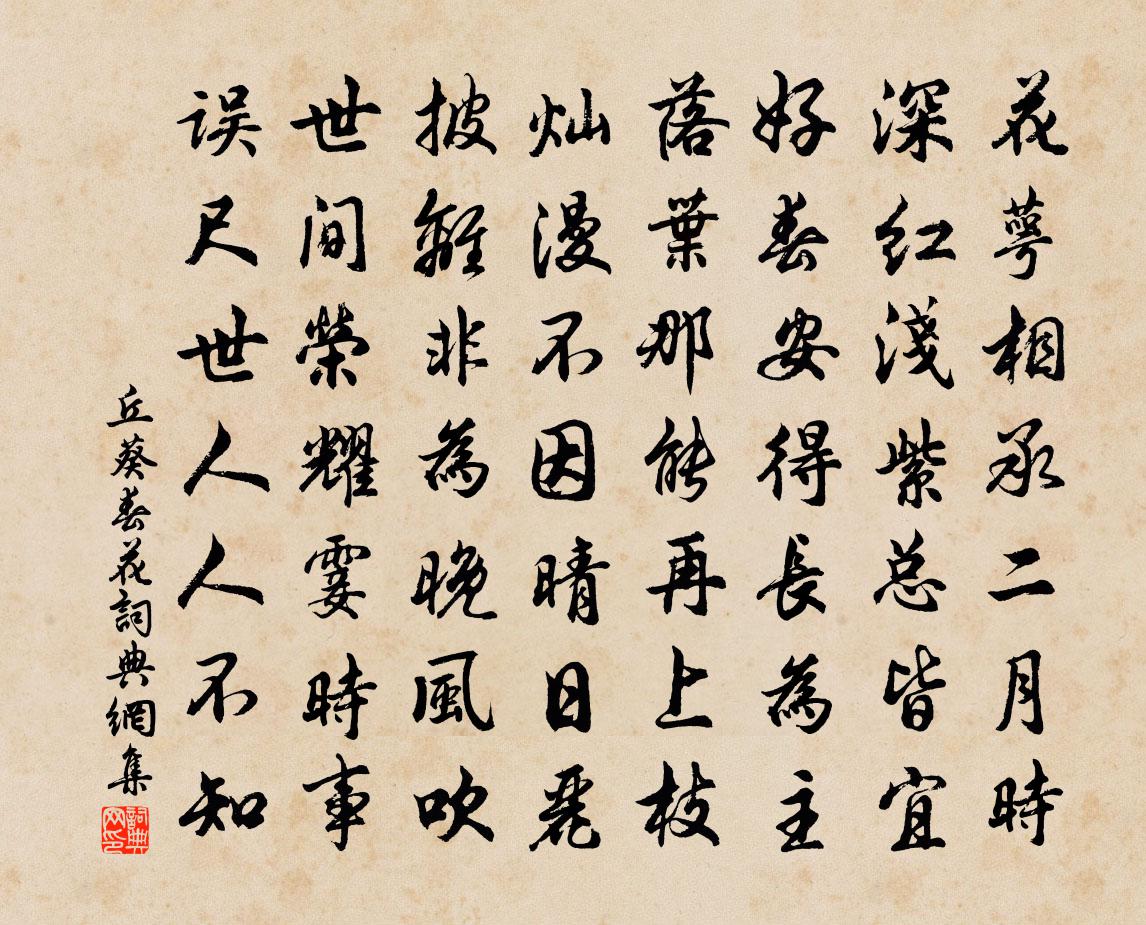 花萼相承二月時
深红淺紫总皆宜
好春安得長為主
落葉那能再上枝
灿漫不因晴日麗
披離非為晚風吹
世间榮耀霎時事
误尺世人人不知
丘葵春花詞典網集
詞典网印